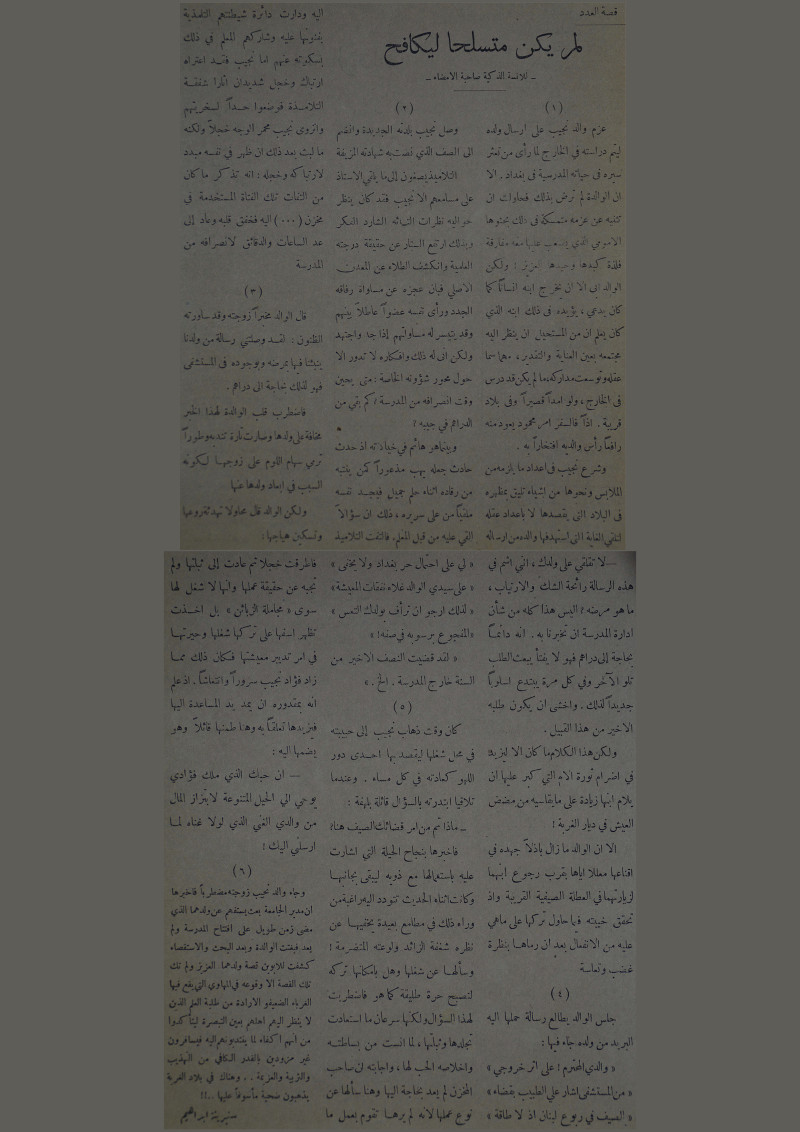 قصة العدد
لم يكن متسلحا ليكافح
ــ للآنسة الذكية صاحبة الامضاء ــ
(١)
عزم والد نجيب على ارسال ولده
ليتم دراسته في الخارج لما رأى من تعثر
سيره في حياته المدرسية في بغداد . الا
ان الوالدة لم ترض بذلك فحاولت ان
تثنيه عن عزمه متمسكة في ذلك بحنوها
الامومي الذي يصعب عليها معه مفارقة
فلذة كبدها وحيدها العزيز : ولكن
الوالد ابى الا ان يخرج ابنه انساناً كما
كان يدعي ، يؤيده في ذلك ابنه الذي
كان يعلم ان من المستحيل ان ينظر اليه
مجتمعه بعين العناية والتقدير ، مهما سما
عقله وتوسعت مداركه، ما لم يكن قد درس
في الخارج ، ولو امداً قصيراً وفى بلاد
قريبة . اذاً فالسفر امر محمود يعود منه
رافعاً رأس والديه افتخاراً به .
وشرع نجيب في اعداد ما يلزمه من
الملابس ونحوها من اشياء تليق بمظهره
في البلاد التى يقصدها لا باعداد عقله
لتلقي الغاية التى استهدفها والده من ارساله
(٢)
وصل نجيب بلدته الجديدة وانضم
الى الصف الذي نصت به شهادته المزيفة
التلاميذ يصغون إلى ما يلقي الاستاذ
على مسامعهم الا نجيب فقد كان ينظر
حواليه نظرات التائه الشارد الفكر
وبذلك ارتفع الستار عن حقيقة درجته
العلمية وانكشف الطلاء عن المعدن
الاصلي فبان عجزه عن مساواة رفاقه
الجدد ورأى نفسه عضواً عاطلاً بينهم
وقد يتيسر له مساواتهم إذا جد واجتهد
ولكن انى له ذلك وافكاره لا تدور الا
حول محور شؤونه الخاصة : متى يحين
وقت انصرافه من المدرسة ؟ كم بقي من
الدراهم في جيبه ؟
وبينما هو هائم في خيالاته اذ حدث
حادث جعله يهب مذعوراً كمن ينتبه
من رقاده اثناء حلم جميل فيجد نفسه
ملقياً من على سريره ، ذلك ان سؤالاً
القي عليه من قبل المعلم. فالتفت التلاميذ
اليه ودارت دائرة شيطنتهم التلمذية
يلقونها عليه وشاركهم المعلم في ذلك
بسكوته عنهم اما نجيب فقد اعتراه
ارتباك وخجل شديدان اثارا شفقة
التلامذة فوضعوا حداً لسخريتهم
وانزوى نجيب محمر الوجه خجلاً ولكنه
ما لبث بعد ذلك ان ظهر في نفسه مبدد
لارتباكه وخجله : انه تذكر ما كان
من التفات تلك الفتاة المستخدمة في
مخزن (٠٠٠) اليه فخفق قلبه وعاد إلى
عد الساعات والدقائق لانصرافه من
المدرسة
(٣)
قال الوالد مخبراً زوجته وقد ساورته
الظنون : لقد وصلتني رسالة من ولدنا
ينبئنا فيها بمرضه وبوجوده في المستشفى
فهو لذلك بحاجة الى دراهم .
فاضطرب قلب الوالدة لهذا الخبر
مخافة على ولدها وصارت تارة تندبه وطوراً
ترمي سهام اللوم على زوجها ليكونه
السبب في ابعاد ولدها عنها
ولكن الوالد قال محاولا تهدئة روعها
وتسكين هياجها :
ــ لا تقلقي على ولدك ، انني اشم في
هذه الرسالة رائحة الشك والارتياب ،
ما هو مرضه ؟ اليس هذا كله من شأن
ادارة المدرسة ان تخبرنا به . انه دائماً
بحاجة إلى دراهم فهو لا يفتأ يبعث الطلب
تلو الآخر وفي كل مرة يبتدع اسلوباً
جديداً لذلك . واخشى ان يكون طلبه
الاخير من هذا القبيل .
ولكن هذا الكلام ما كان الا ليزيد
في اضرام ثورة الام التي كبر عليها ان
يلام ابنها زيادة على ما يقاسيه من مضض
العيش في ديار الغربة !
الا ان الوالد ما زال باذلاً جهده في
اقناعها معللا اياها بقرب رجوع ابنهما
لزيارتهما في العطلة الصيفية القريبة واذ
تحقق خيبته فيما حاول تركها على ما هي
عليه من الانفعال بعد ان رماها بنظرة
غضب وتعاسة
(٤)
جلس الوالد يطالع رسالة حملها اليه
البريد من ولده جاء فيها :
« والدي المحترم ! على اثر خروجي »
« من المستشفى اشار علي الطبيب بقضاء »
« الصيف في ربوع لبنان اذ لا طاقة »
« لي على احتمال حر بغداد ولا يخفى »
« على سيدي الوالد غلاء نفقات المعيشة »
« لذلك ارجو ان ترأف بولدك التعس »
« المفجوع برسوبه في صفه ! »
« لقد قضيت النصف الاخير من
السنة خارج المدرسة . الخ . »
(٥)
كان وقت ذهاب نجيب إلى حبيبته
في محل شغلها ليقصد بها احدى دور
اللهو كعادته في كل مساء . وعندما
تلاقيا ابتدرته بالسؤال قائلة بلهفة :
ــ ماذا تم من امر قضائك الصيف هنا؟
فاخبرها بنجاح الحيلة التي اشارت
عليه باستعمالها مع ذويه ليبقى بجانبها
وكانت اثناء الحديث تتودد اليه راغبة من
وراء ذلك في مطامع بعيدة يخفيها عن
نظره شغفه الزائد ولوعته المتضرمة !
وسألها عن شغلها وهل بامكانها تركه
لتصبح حرة طليقة كما هو فاضطربت
لهذا السؤال ولكنها سرعان ما استعادت
تجلدها وثباتها ، لما آنست من بساطته
واخلاصه الحب لها ، واجابته ان صاحب
المخزن لم يعد بحاجة اليها وهنا سألها عن
نوع عملها لانه لم يرها تقوم بعمل ما
فاطرقت خجلاً ثم عادت إلى ثباتها ولم
تجبه عن حقيقة عملها وانها لا شغل لها
سوى « مجاملة الزبائن » بل اخذت
تظهر اسفها على تركها شغلها وحيرتها
في امر تدبير معيشتها فكان ذلك مما
زاد فؤاد نجيب سروراً وانتعاشاً . اذ علم
انه بمقدوره ان يمد يد المساعدة اليها
فيزيدها تعلقاً به وهنا طمنها قائلاً وهو
يضمها اليه :
ــ ان حبك الذي ملك فؤادي
يوحي الي الحيل المتنوعة لابتزاز المال
من والدي الغني الذي لولا غناه لما
ارسلني اليك !
(٦)
وجاء والد نجيب زوجته مضطرباً فاخبرها
ان مدير الجامعة بعث يستفهم عن ولدهما الذي
مضى زمن طويل على افتتاح المدرسة ولم
يعد فبغتت الوالدة وبعد البحث والاستقصاء
كشفت للابوين قصة ولدهما العزيز ولم تك
تلك القصة الا وقوعه في المهاوي التي يقع فيها
الغرباء الضعيفو الارادة من طلبة العلم الذين
لا ينظر اليهم اهلهم بعين التبصرة ليتأكدوا
من انهم اكفاء لما ينتدبونهم اليه فيسافرون
غير مزودين بالقدر الكافي من التهذيب
والتربية والعزيمة . . وهناك في بلاد الغربة
يذهبون ضحية مأسوفاً عليها ..!!
صبرية ابراهيم